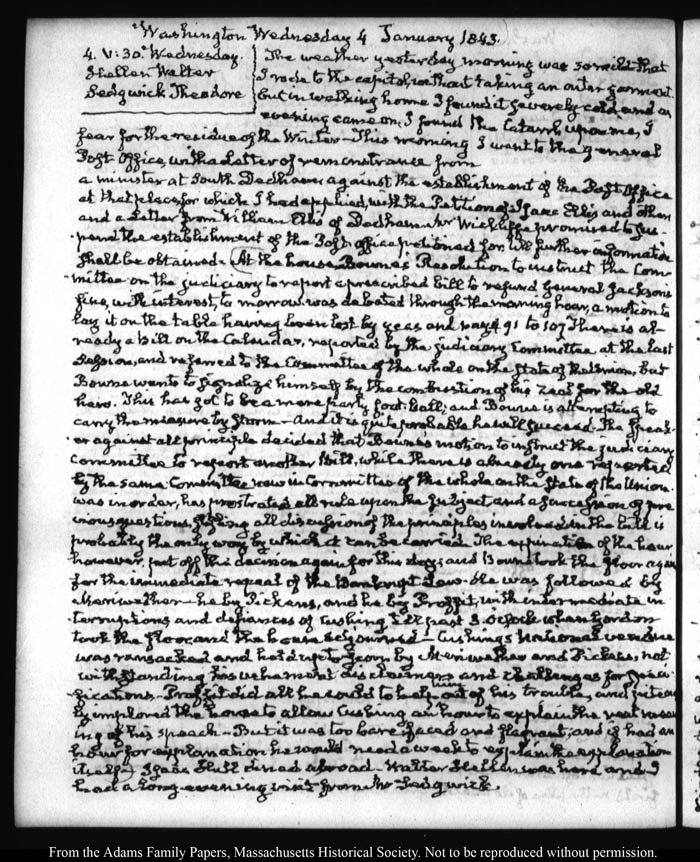 Washington Wednesday 4 January 1843.
4. V:30. Wednesday.
Hellen Walter
Sedgwick Theodore
The weather yesterday morning was so mild that
I rode to the capitol without taking an outer garment
but in walking home I found it severely cold and as
evening came on, I found the Catarrh upon me, I
fear for the residue of the Winter — This morning I went to the general
Post Office, with a Letter of remonstrance from
a minister at South Dedham, against the establishment of the Post Office
at that place, for which I had applied, with the Petition of Isaac Ellis and others
and a Letter from William Ellis of Dedham. Mr Wickliffe promised to sus-
pend the establishment of the Post office petitioned for, till further information
shall be obtained. At the house Bowne's Resolution to instruct the Com-
mittee on the judiciary to report a prescribed bill to refund General Jackson's
fine, with interest, to morrow was debated through the morning hour, a motion to
lay it on the table having been lost by yeas and nays 91 to 107 There is al-
ready a Bill on the Calendar, reported by the judiciary Committee at the last
Session, and referred to the Committee of the whole on the state of the Union, but
Bowne wants to signalize himself by the combustion of his zeal for the old
hero. This has got to be a mere party foot-ball; and Bowne is attempting to
carry the measure by storm — And it is quite probable he will succeed. The Speak-
er against all principle decided that Bowne's motion to instruct the judiciary
Committee to report another Bill, while there is already one reported
by the same Committee now in Committee of the whole on the State of the Union.
was in order, has prostrated all rule upon the subject and a succession of pre-
vious questions, stifling all discussion of the principles involved in the bill is
probably the only way by which it can be carried. The expiration of the hour
however, put off the decision again for this day; and Bowne took the floor again
for the immediate repeal of the Bankrupt Law. He was followed by
Meriwether — he by Pickens, and he by Proffit, with intermediate in-
terruptions and defiances of Cushing till past 3. o'clock when Gordon
took the floor, and the house adjourned — Cushing's
was ransacked and held up to scorn by Meriwether and Pickens, not
withstanding his vehement disclaimers and challenges for speci-
fications — Proffit did all he could to help him out of his trouble, and piteous-
ly implored the house to allow Cushing an hour to explain the real mean-
ing of his speech — But it was too barefaced and flagrant; and if he had an
hour for explanation he would need a week to explain the explanation
itself — Isaac Hull dined abroad. Walter Hellen was here and I
had a long evening visit from Mr Sedgwick.
From the Adams Family Papers, Massachusetts Historical Society. Not to be reproduced without permission.